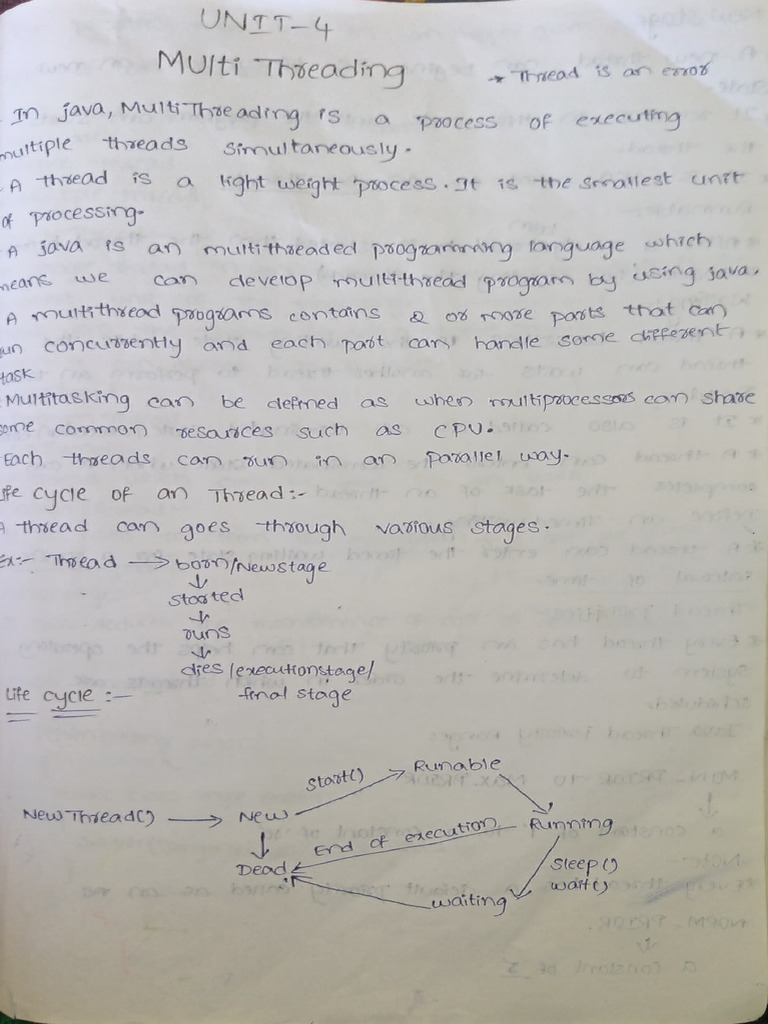 UNIT-4
Multi Threading
* Thread is an error
In java, MultiThreading is a process of executing
multiple threads simultaneously.
A thread is a light weight process. It is the smallest unit
of processing.
A java is an multithreaded programming language which
means we can develop multithread program by using java.
A multithread programs contains 2 or more parts that can
run concurrently and each part can handle some different
task
Multitasking can be defined as when multiprocessors can share
some common resources such as CPU.
Each threads can run in an parallel way.
life cycle of an Thread:-
A thread can goes through various stages.
Ex:- Thread → born/Newstage
↓
started
↓
runs
↓
dies/executionstage/
final stage
Life cycle :-
Start() Runable
NewThread() → New Running
End of execution
Dead
Sleep()
wait()
waiting